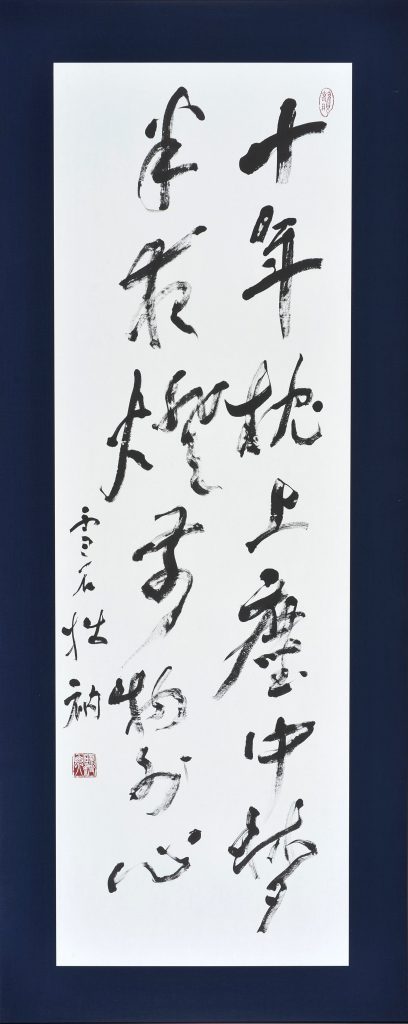 十年枕上塵中夢
半夜燈前物外心
雲石拙衲